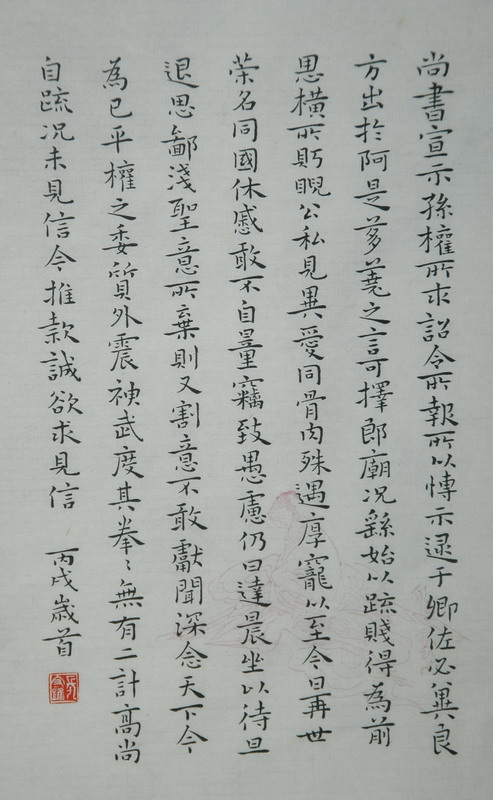 尚書宣示孫權所求詔令所報所以博示逮于卿佐必冀良
方出於阿是芻蕘之言可擇郎廟况繇始以疏賤得為前
恩橫所眄睨公私見異愛同骨肉殊遇厚寵以至今日再世
榮名同國休慼敢不自量竊致愚慮仍日達晨坐以待旦
退思鄙淺聖意所棄則又割意不敢獻聞深念天下今
為已平權之委質外震神武度其拳〻無有二計高尚
自疏况未見信今推款誠欲求見信 丙戌歲首